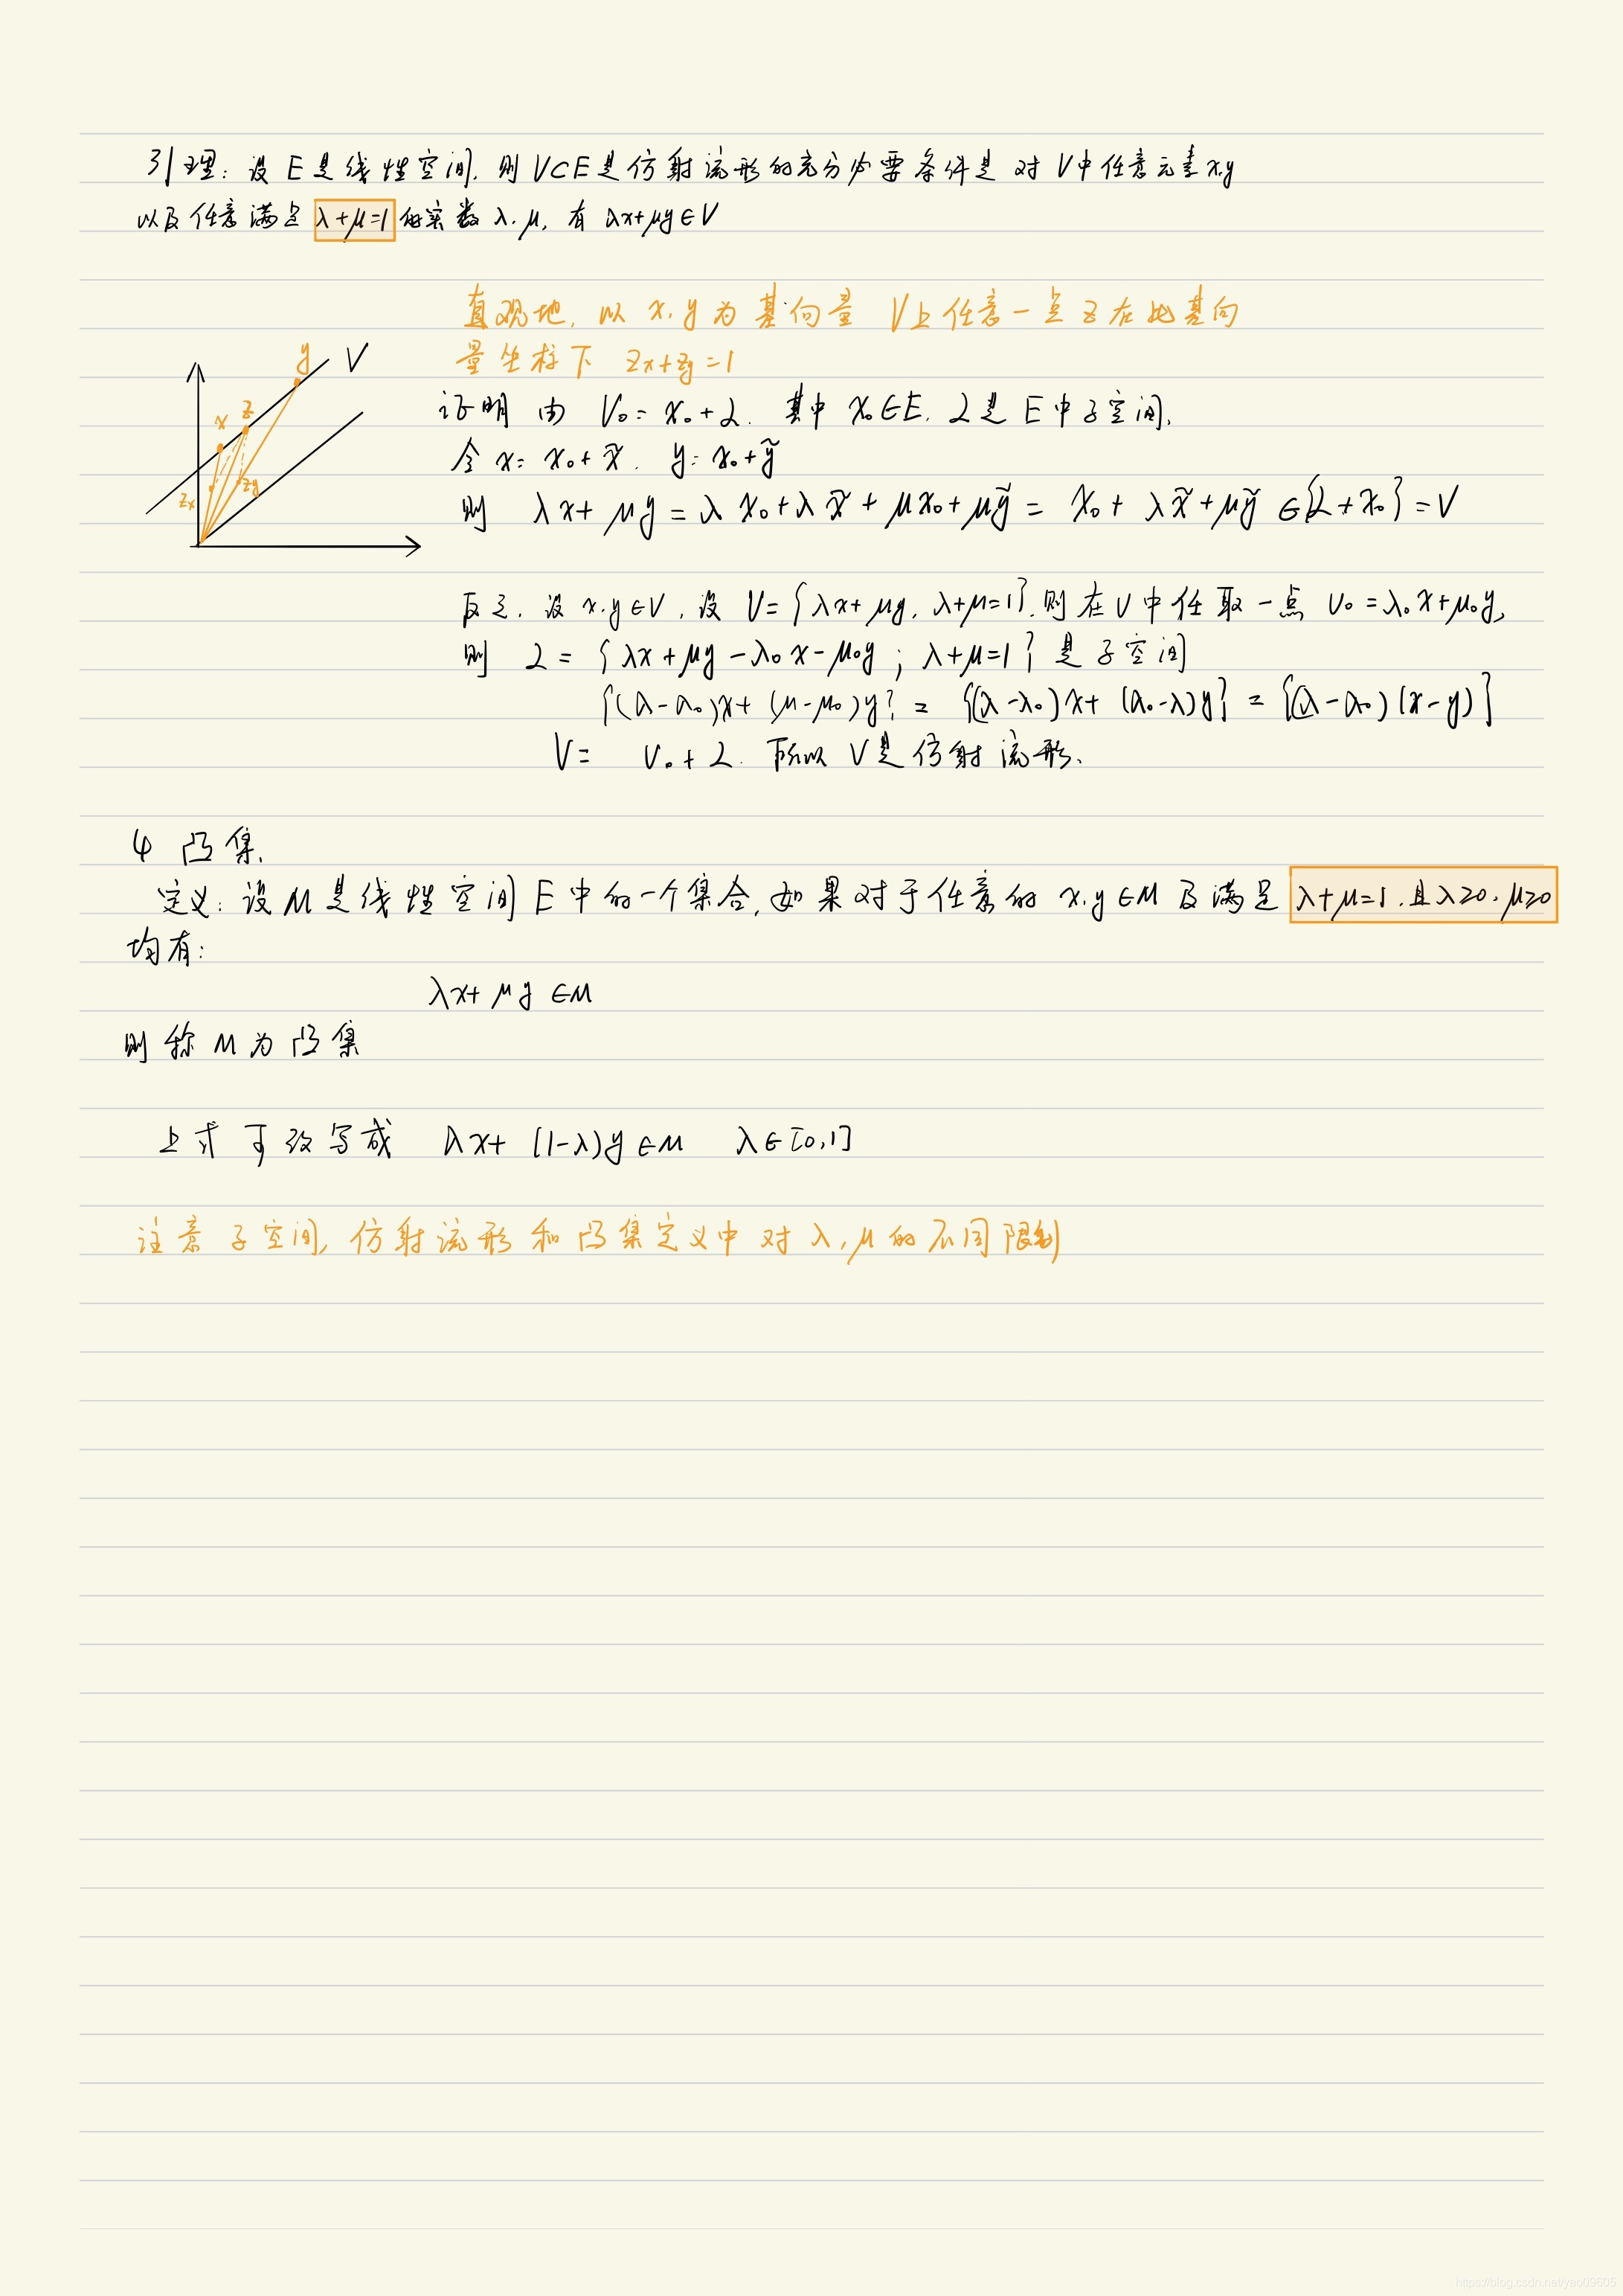 引理: 设 E 是线性空间. 则 V⊂E 是仿射流形的充分必要条件是 对 V中任意元素 x,y
以及任意满足 λ+μ=1 的实数 λ.μ, 有 λx+μy∈V
直观地, 以 x.y 为基向量 V上任意一点 z 在此基向
量坐标下 zx+zy=1
y V
z
x
zx
zy
证明 由 V₀= x₀+L. 其中 x₀∈E. L是 E 中子空间.
令 x= x₀+x̃. y= x₀+ỹ
则 λx+ μy = λx₀+λx̃+μx₀+μỹ = x₀+ λx̃+μỹ ∈{L+x₀}=V
反之. 设 x.y∈V, 设 V={λx+μy, λ+μ=1}. 则在V中任取一点 v₀=λ₀x+μ₀y,
则 L= {λx+μy-λ₀x-μ₀y ; λ+μ=1} 是子空间
{(λ-λ₀)x+(μ-μ₀)y} = {(λ-λ₀)x+(λ₀-λ)y} = {(λ-λ₀)(x-y)}
V= v₀+L. 所以 V是仿射流形.
4 凸集.
定义: 设 M 是线性空间 E 中的一个集合, 如果对于任意的 x.y∈M 及满足 λ+μ=1.且λ≥0.μ≥0
均有:
λx+ μy ∈M
则称 M 为凸集
上式可改写成 λx+ (1-λ)y∈M λ∈[0,1]
注意子空间, 仿射流形和凸集定义中对 λ,μ 的不同限制
https://blog.csdn.net/yao09605